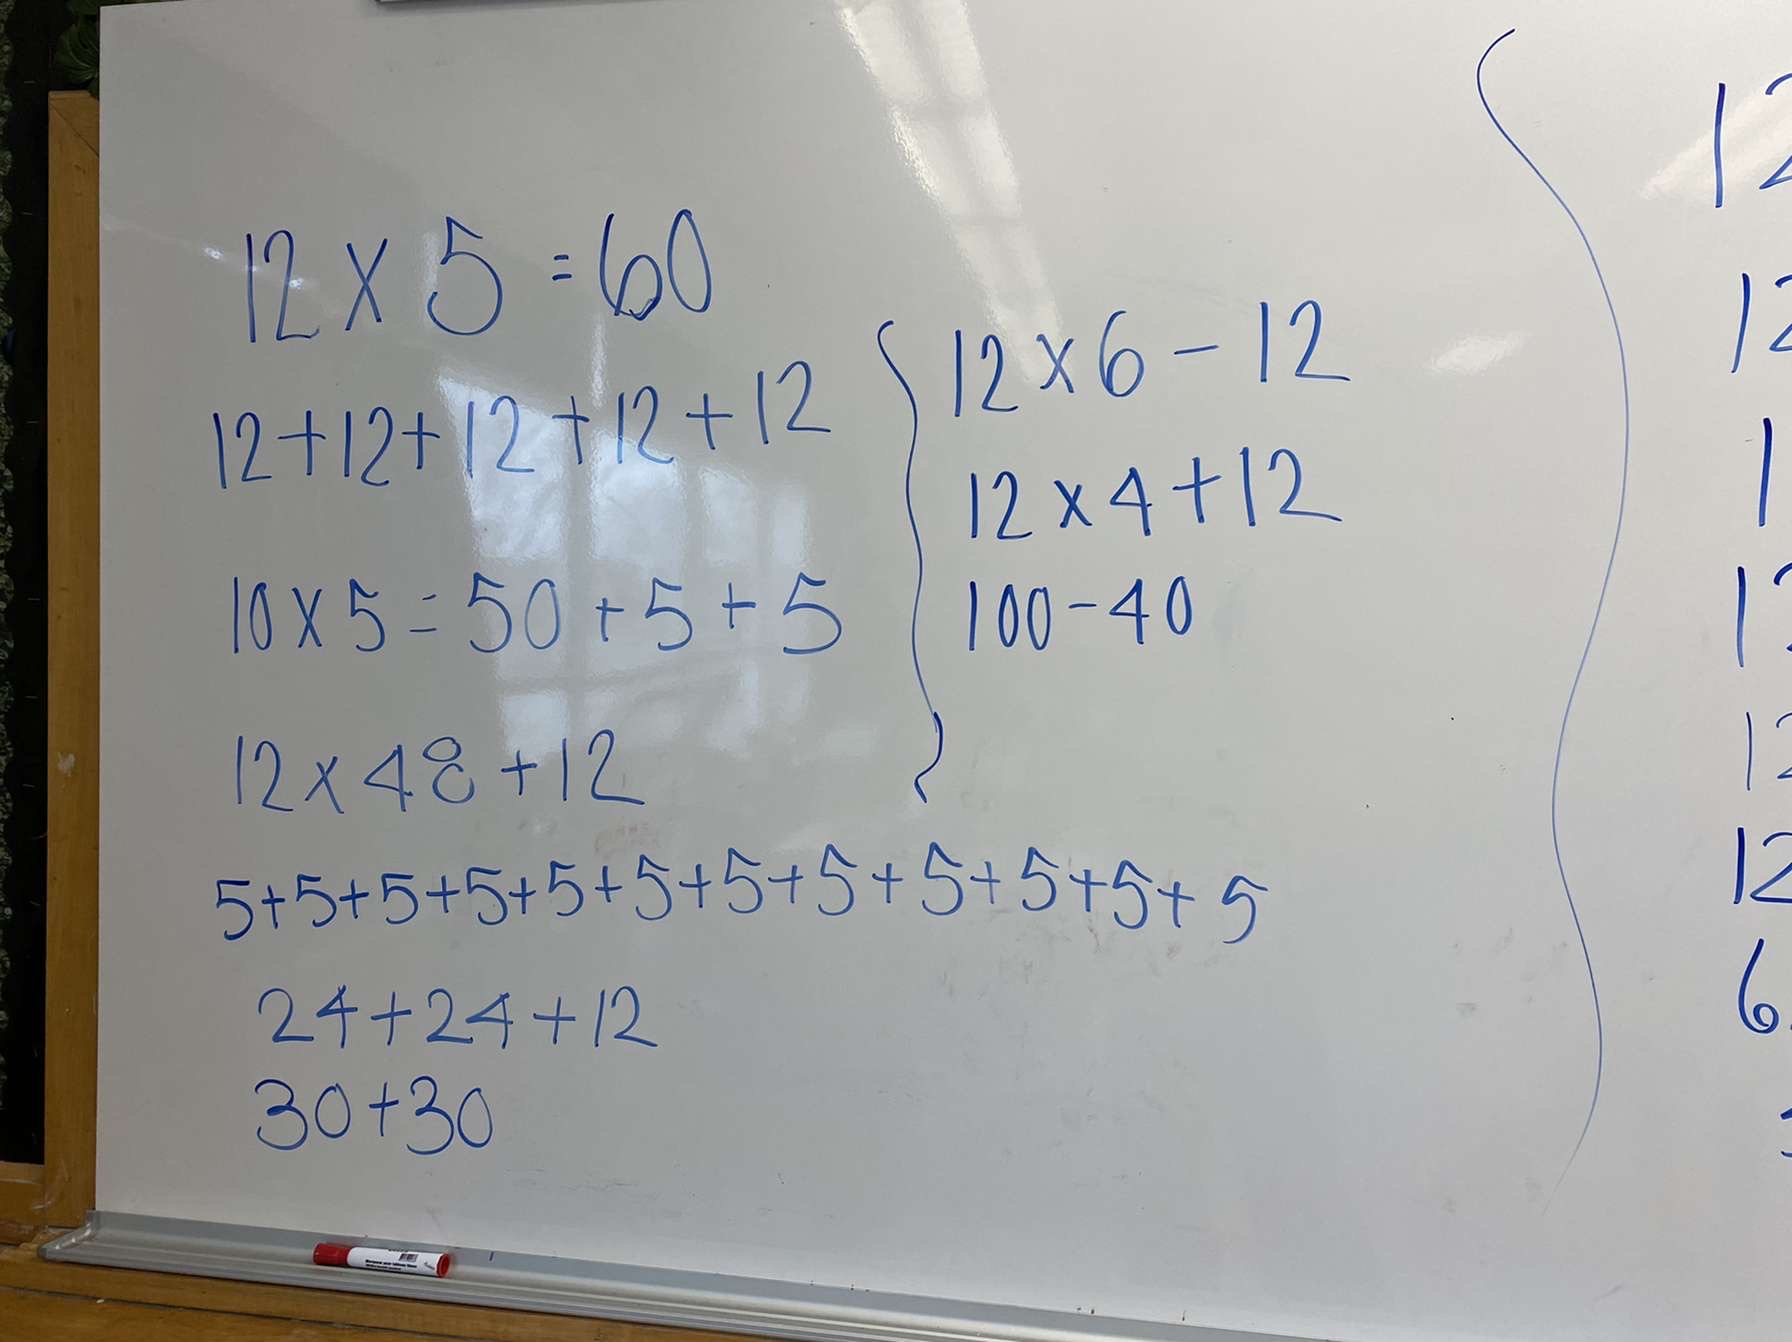 12 x 5 = 60
12+12+12+12+12
10 x 5 = 50 + 5 + 5
12 x 48 + 12
5+5+5+5+5+5+5+5+5+5+5+5
24+24+12
30+30
12 x 6 - 12
12 x 4 + 12
100 - 40
12
12
1
12
12
12
6